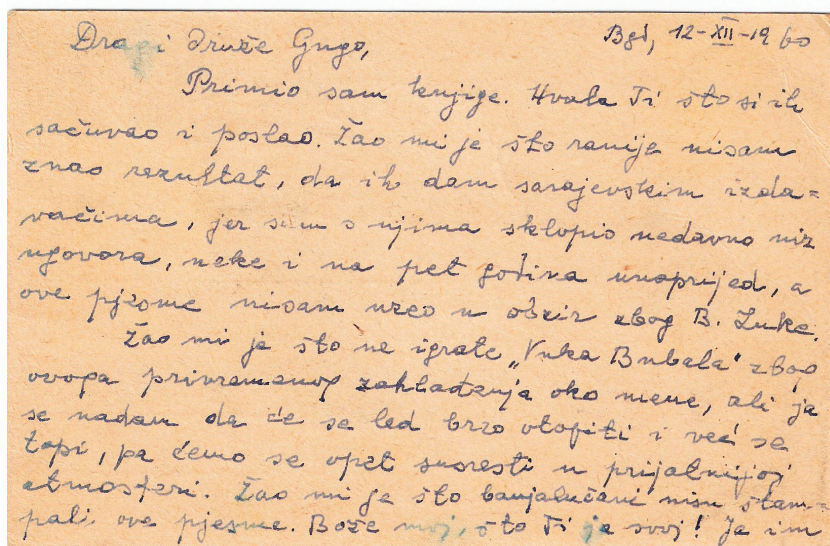 Bgd, 12-XII-1960
Dragi druže Gugo,
Primio sam knjige. Hvala Ti što si ih
sačuvao i poslao. Žao mi je što ranije nisam
znao rezultat, da ih dam sarajevskim izda=
vačima, jer sam s njima sklopio nedavno niz
ugovora, neke i na pet godina unaprijed, a
ove pjesme nisam uzeo u obzir zbog B. Luke.
Žao mi je što ne igrate „Vuka Bubala" zbog
ovoga privremenog zahlađenja oko mene, ali ja
se nadam da će se led brzo otopiti i već se
topi, pa ćemo se opet susresti u prijatnijoj
atmosferi. Žao mi je što banjalučani nisu štam=
pali ove pjesme. Bože moj, što Ti je svoj! Ja im